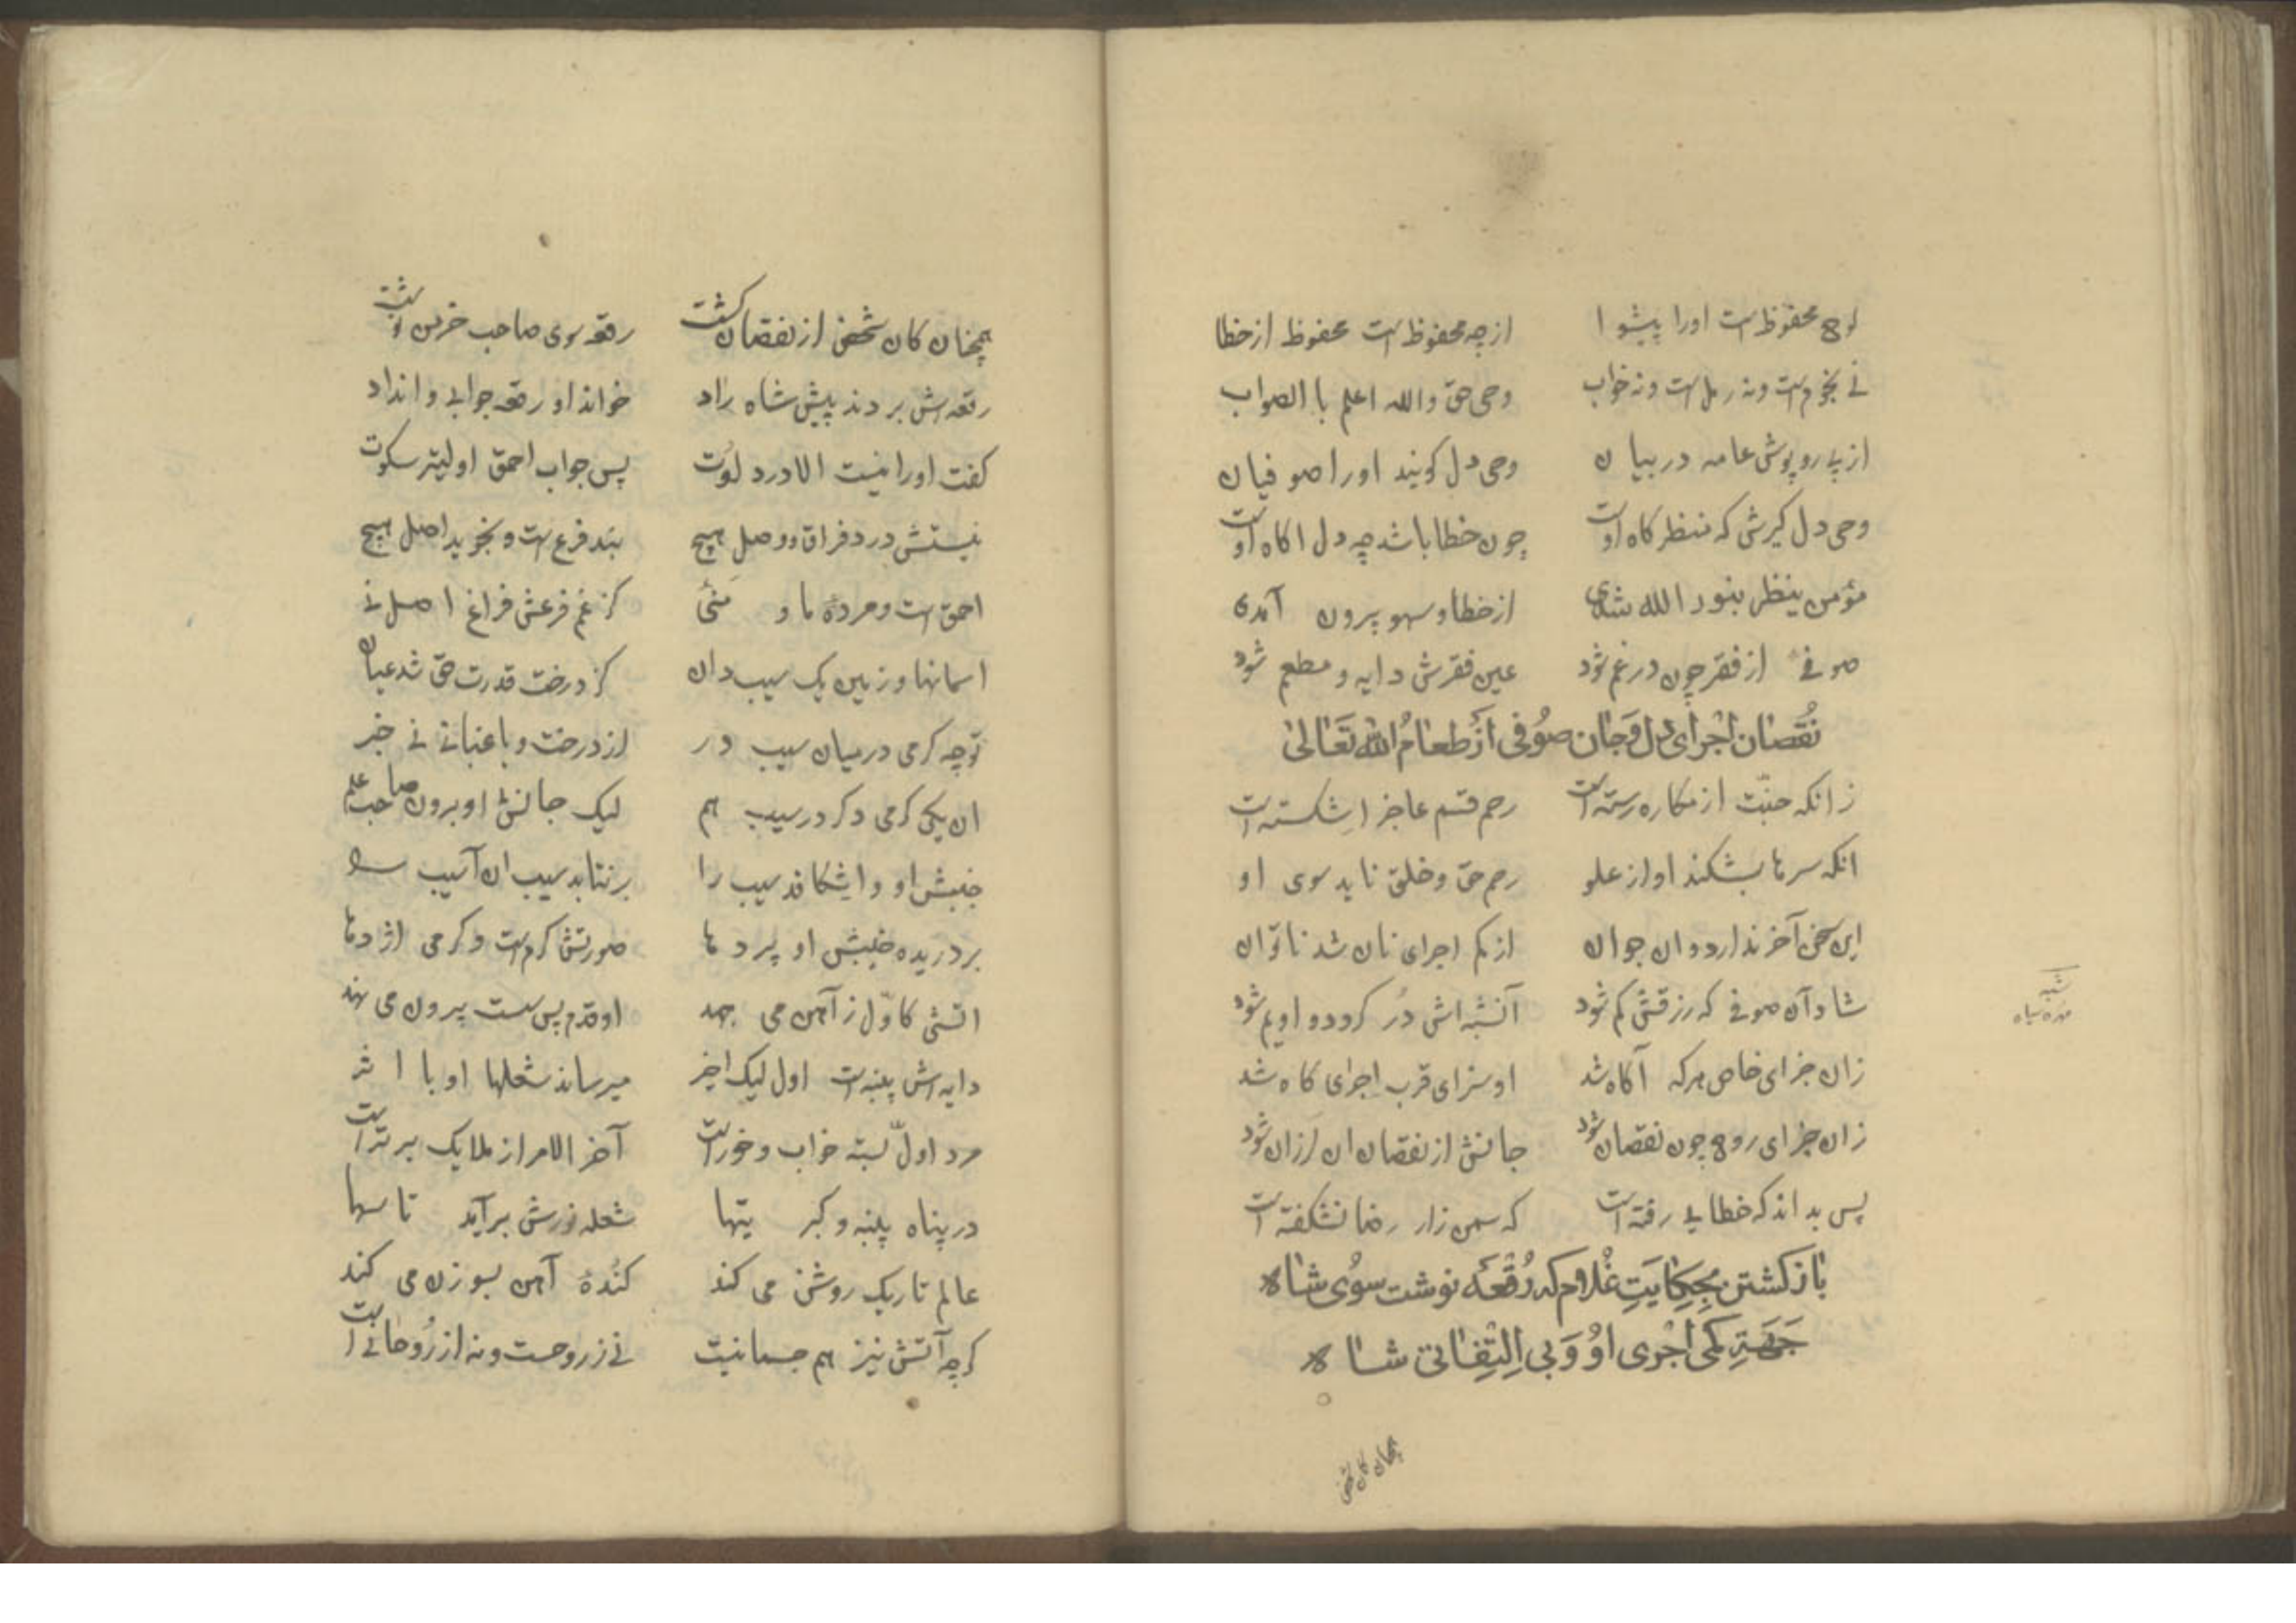 لوح محفوظ است اورا پیشوا از چه محفوظ است محفوظ از خطا
نے نجوم است و نه رمل است و نه خواب وحی حق والله اعلم با الصواب
از پے روپوش عامه در بیان وحی دل کویند اورا صوفیان
وحی دل کیرش که منظر کاه اوست چون خطا باشد چه دل اکاه اوست
مؤمن ینظر بنور الله شدی از خطا و سهو بیرون آمدی
صوفے از فقر چون در غم شود عین فقرش دایه و مطعم شود
نقصان اجرای دل و جان صوفی از طعام الله تعالی
زانکه جنّت از مکاره رسته است رحم قسم عاجز اشکسته است
انکه سرها بشکند او از علو رحم حق و خلق ناید سوی او
این سخن آخر ندارد و ان جوان از کم اجرای نان شد ناتوان
شاد آن صوفے که رزقش کم شود آن شبه اش دُر کردد و او یم شود
زان جرای خاص هرکه آکاه شد او سزای قرب و اجرای کاه شد
زان جرای روح چون نقصان شود جانش از نقصان ان لرزان شود
پس بداند که خطایے رفته است که سمن زار رضا نشکفته است
بازکشتن بحکایت غلام که رقعه نوشت سوی شاه
جهة کمی اجری او و بی التفاتی شاه
شبه
مهره سیاه
همچنان کان شخص
همچنان کان شخص از نقصان کشت رقعه سوی صاحب خرمن نوشت
رقعه اش بردند پیش شاه راد خواند او رقعه جوابے وانداد
کفت اورا نیست الا درد لوت پس جواب احمق اولیتر سکوت
نیستش درد فراق و وصل هیچ بند فرع است و نجوید اصل هیچ
احمق است و مردهٔ ما و منی کز غم فرعش فراغ اصل نے
اسمانها و زمین یک سیب دان کز درخت قدرت حق شد عیان
تو چه کرمی درمیان سیب در از درخت و باغبانے نے خبر
ان یکی کرمی دکر در سیب هم لیک جانش او برون صاحب علم
جنبش او واشکافد سیب را برنتابد سیب ان آسیب را
بر دریده جنبش او پردها صورتش کرم است و کرمی اژدها
اتشی کاوّل ز آهن می جهد او قدم بس سست بیرون می نهد
دایه اش پنبه است اول لیک اخیر میرساند شعلها او با اثیر
مرد اوّل بسته خواب و خورست آخر الامر از ملایک برترست
در پناه پنبه و کبریتها شعله نورش برآید تا سها
عالم تاریک روشن می کند کندهٔ آهن بسوزن می کند
کرچه آتش نیز هم جسمانیست نے ز روحست و نه از روحانےاست